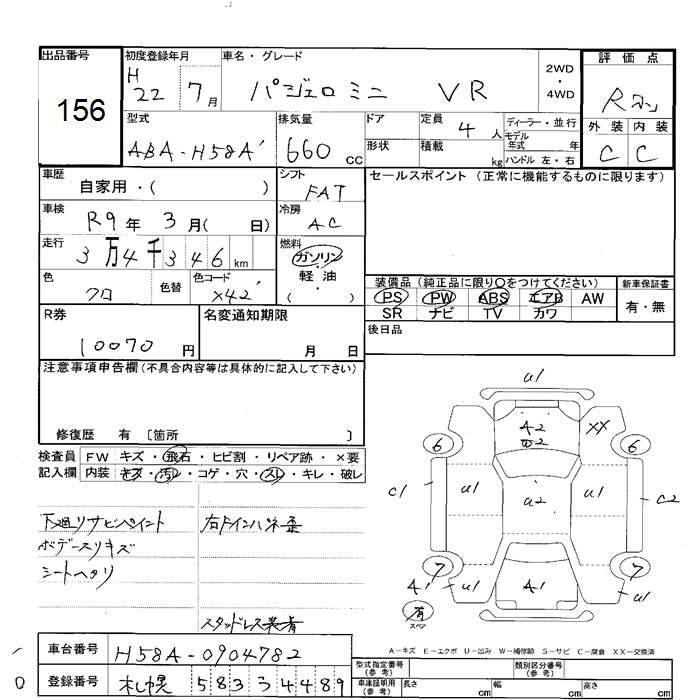 出品番号
156
初度登録年月
H 22 7 月
車名・グレード
パジェロ ミニ VR
2WD
・
4WD
評価点
型式
ABA-H58A
排気量
660 CC
ドア
形状
定員 4 人
積載 kg
ディーラー・並行
モデル年式 年
ハンドル 左・右
外装 内装
C C
車歴
自家用・( )
シフト
FAT
セールスポイント (正常に機能するものに限ります)
車検
R9 年 3 月( 日)
冷房
AC
走行
3 万 4 千 3 4 6 km
燃料
ガソリン
・
軽油
・
( )
色
クロ
色替
色コード
X42
装備品 (純正品に限り○をつけてください)
PS PW ABS エアB AW
SR ナビ TV カワ
新車保証書
有・無
R券
10070 円
名変通知期限
月 日
後日品
注意事項申告欄 (不具合内容等は具体的に記入して下さい)
修復歴 有 〔箇所 〕
検査員
記入欄
FW キズ・飛石・ヒビ割・リペア跡・×要
内装 キズ・汚レ・コゲ・穴・スレ・キレ・破レ
下廻リサビペイント
ボデースリキズ
シートヘタリ
右F インパネ歪
スタッドレス装着
U1
A2
XX
6 6
C1 U1 U2 U1 C2
7 7
A1 U1 A1 U1
有
スペア
A-キズ E-エクボ U-凹み W-補修跡 S-サビ C-腐食 XX-交換済
車台番号
H58A-0904782
登録番号
札幌 583 う 4489
型式指定番号
(参考)
類別区分番号
(参考)
車体証明用
(参考)
長さ cm
幅 cm
高さ cm